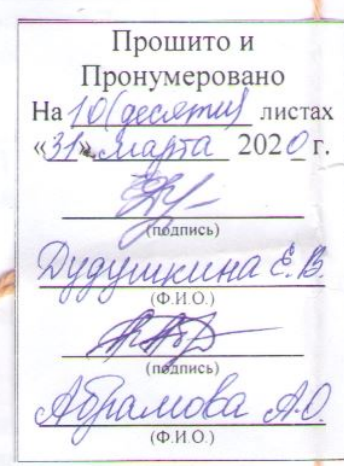 Прошито и
Пронумеровано
На 10 (десяти) листах
«31» марта 2020 г.
(подпись)
Дудушкина Е.В.
(Ф.И.О.)
(подпись)
Абрамова А.О.
(Ф.И.О.)